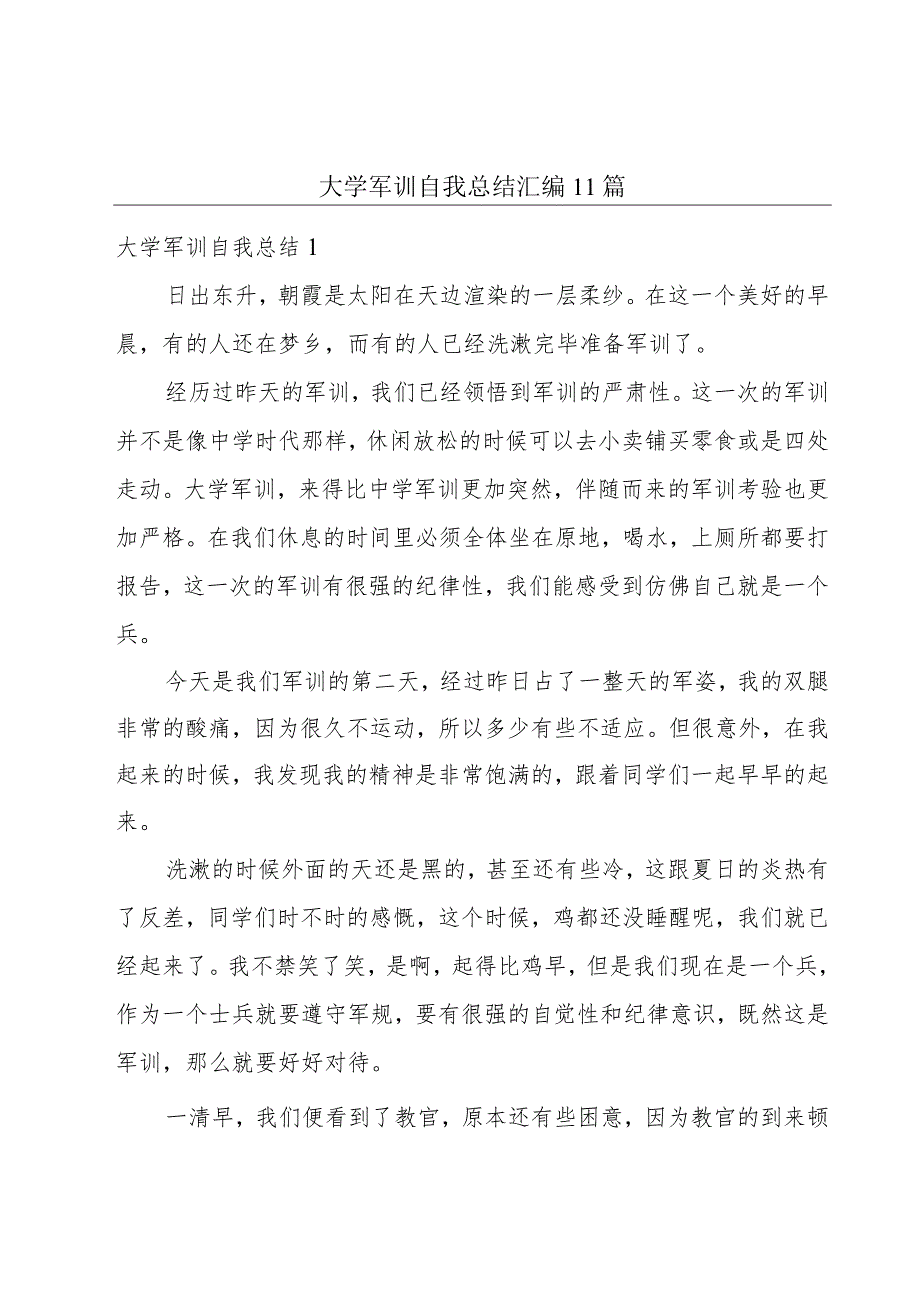 大学军训自我总结汇编11篇
大学军训自我总结1
日出东升，朝霞是太阳在天边渲染的一层柔纱。在这一个美好的早
晨，有的人还在梦乡，而有的人已经洗漱完毕准备军训了。
经历过昨天的军训，我们已经领悟到军训的严肃性。这一次的军训
并不是像中学时代那样，休闲放松的时候可以去小卖铺买零食或是四处
走动。大学军训，来得比中学军训更加突然，伴随而来的军训考验也更
加严格。在我们休息的时间里必须全体坐在原地，喝水，上厕所都要打
报告，这一次的军训有很强的纪律性，我们能感受到仿佛自己就是一个
兵。
今天是我们军训的第二天，经过昨日占了一整天的军姿，我的双腿
非常的酸痛，因为很久不运动，所以多少有些不适应。但很意外，在我
起来的时候，我发现我的精神是非常饱满的，跟着同学们一起早早的起
来。
洗漱的时候外面的天还是黑的，甚至还有些冷，这跟夏日的炎热有
了反差，同学们时不时的感慨，这个时候，鸡都还没睡醒呢，我们就已
经起来了。我不禁笑了笑，是啊，起得比鸡早，但是我们现在是一个兵，
作为一个士兵就要遵守军规，要有很强的自觉性和纪律意识，既然这是
军训，那么就要好好对待。
一清早，我们便看到了教官，原本还有些困意，因为教官的到来顿